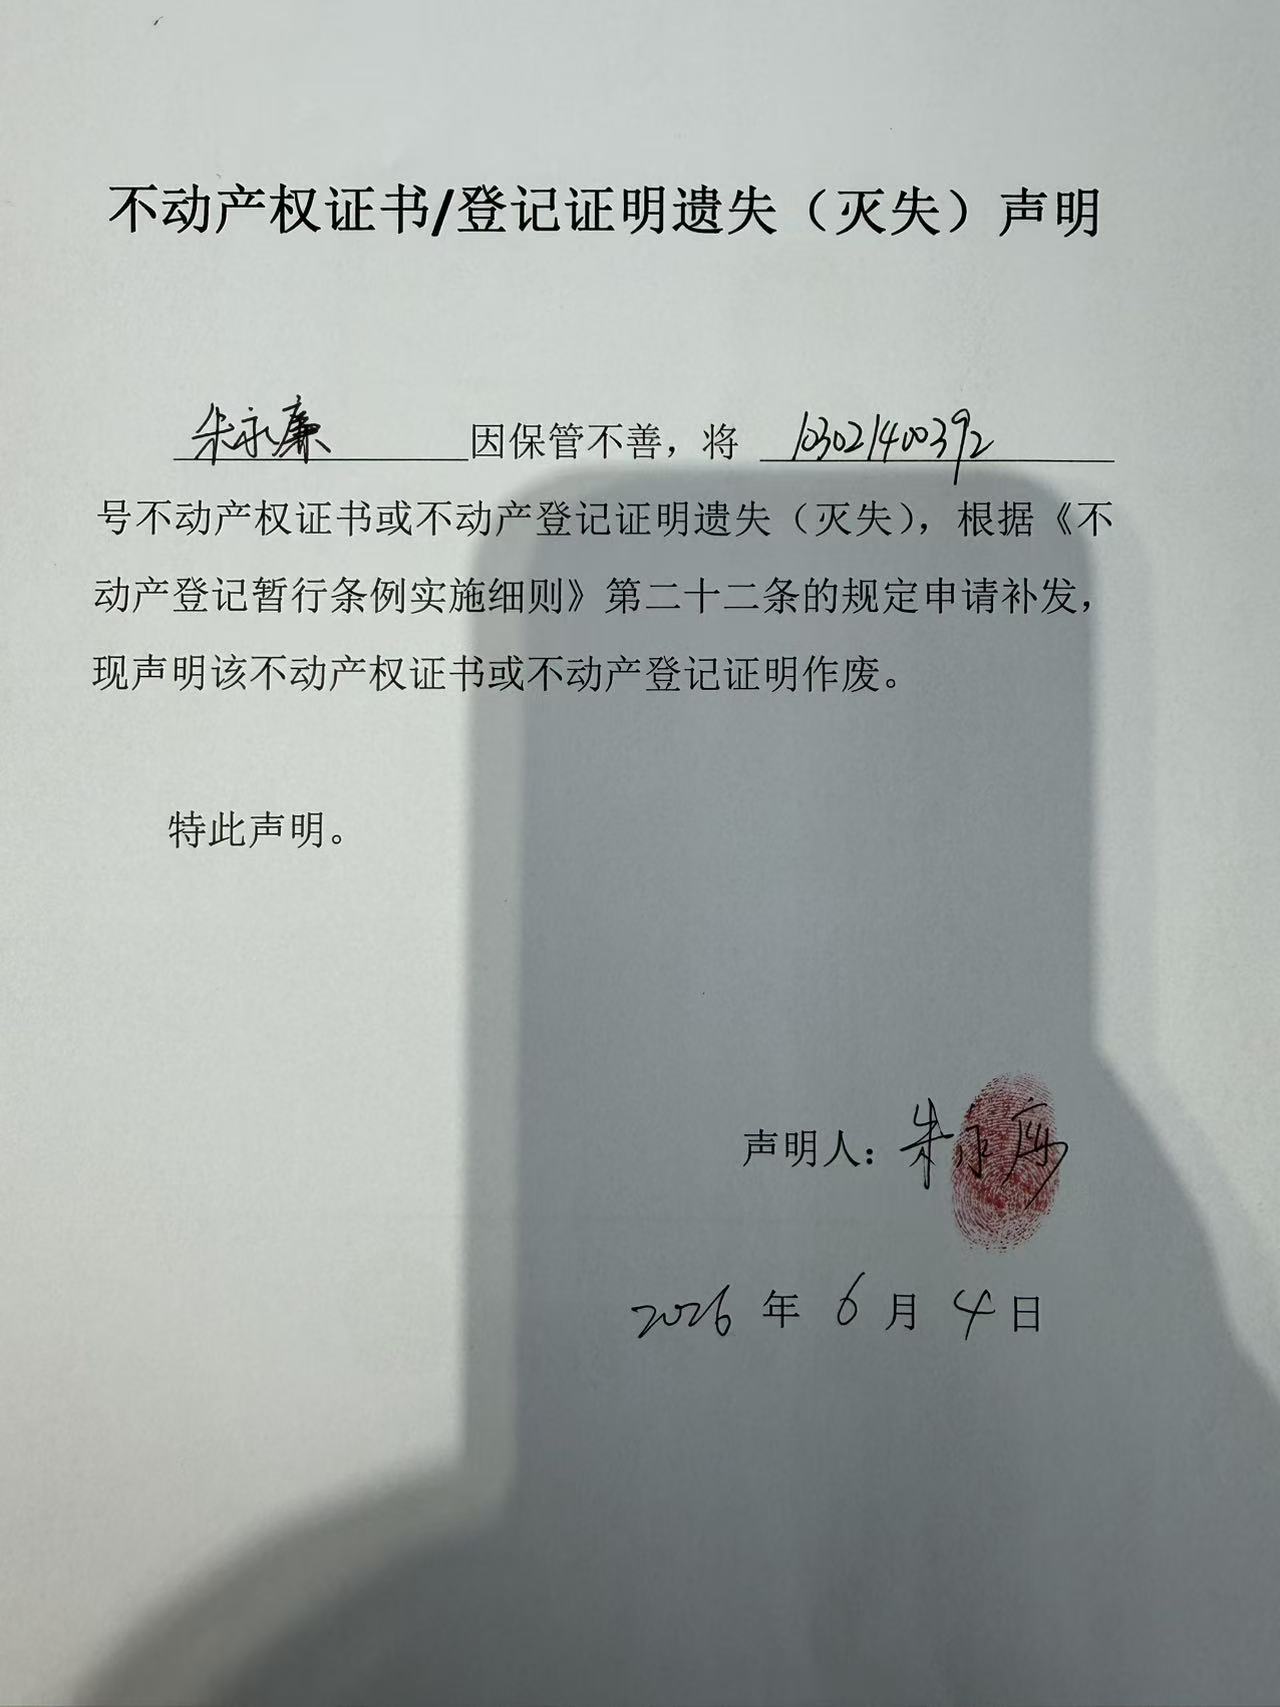 不动产权证书/登记证明遗失（灭失）声明
朱永廉因保管不善，将 103021400392
号不动产权证书或不动产登记证明遗失（灭失），根据《不
动产登记暂行条例实施细则》第二十二条的规定申请补发，
现声明该不动产权证书或不动产登记证明作废。
特此声明。
声明人：朱永廉
2026 年 6 月 4 日